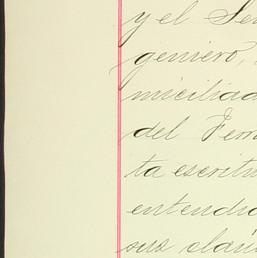 y el Se
geniero,
miciliad
del Ferr
ta escritu
entendid
sus cláus